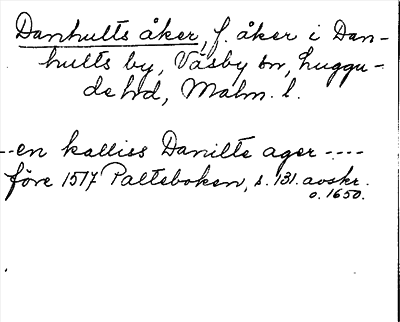 Danhults åker, f. åker i Dan-
hults by, Väsby sn, Luggu-
de hd, Malm. l.
--en kalliss Danilte ager ----
före 1517 Palteboken, s. 131. avskr.
o. 1650.